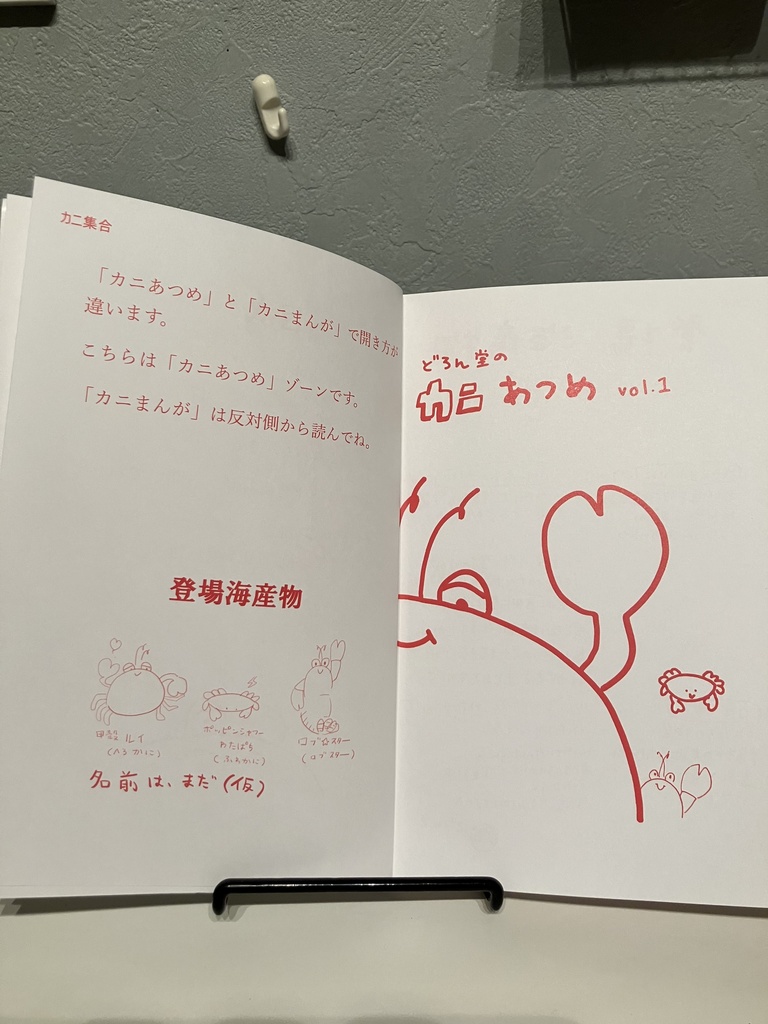 カニ集合
「カニあつめ」と「カニまんが」で開き方が
違います。
こちらは「カニあつめ」ゾーンです。
「カニまんが」は反対側から読んでね。
登場海産物
甲殻ルイ
ポッピンシャワー
わたぱち
ロブ☆スター
(ロブスター)
名前は、まだ(仮)
どろん堂の
カニあつめ vol.1